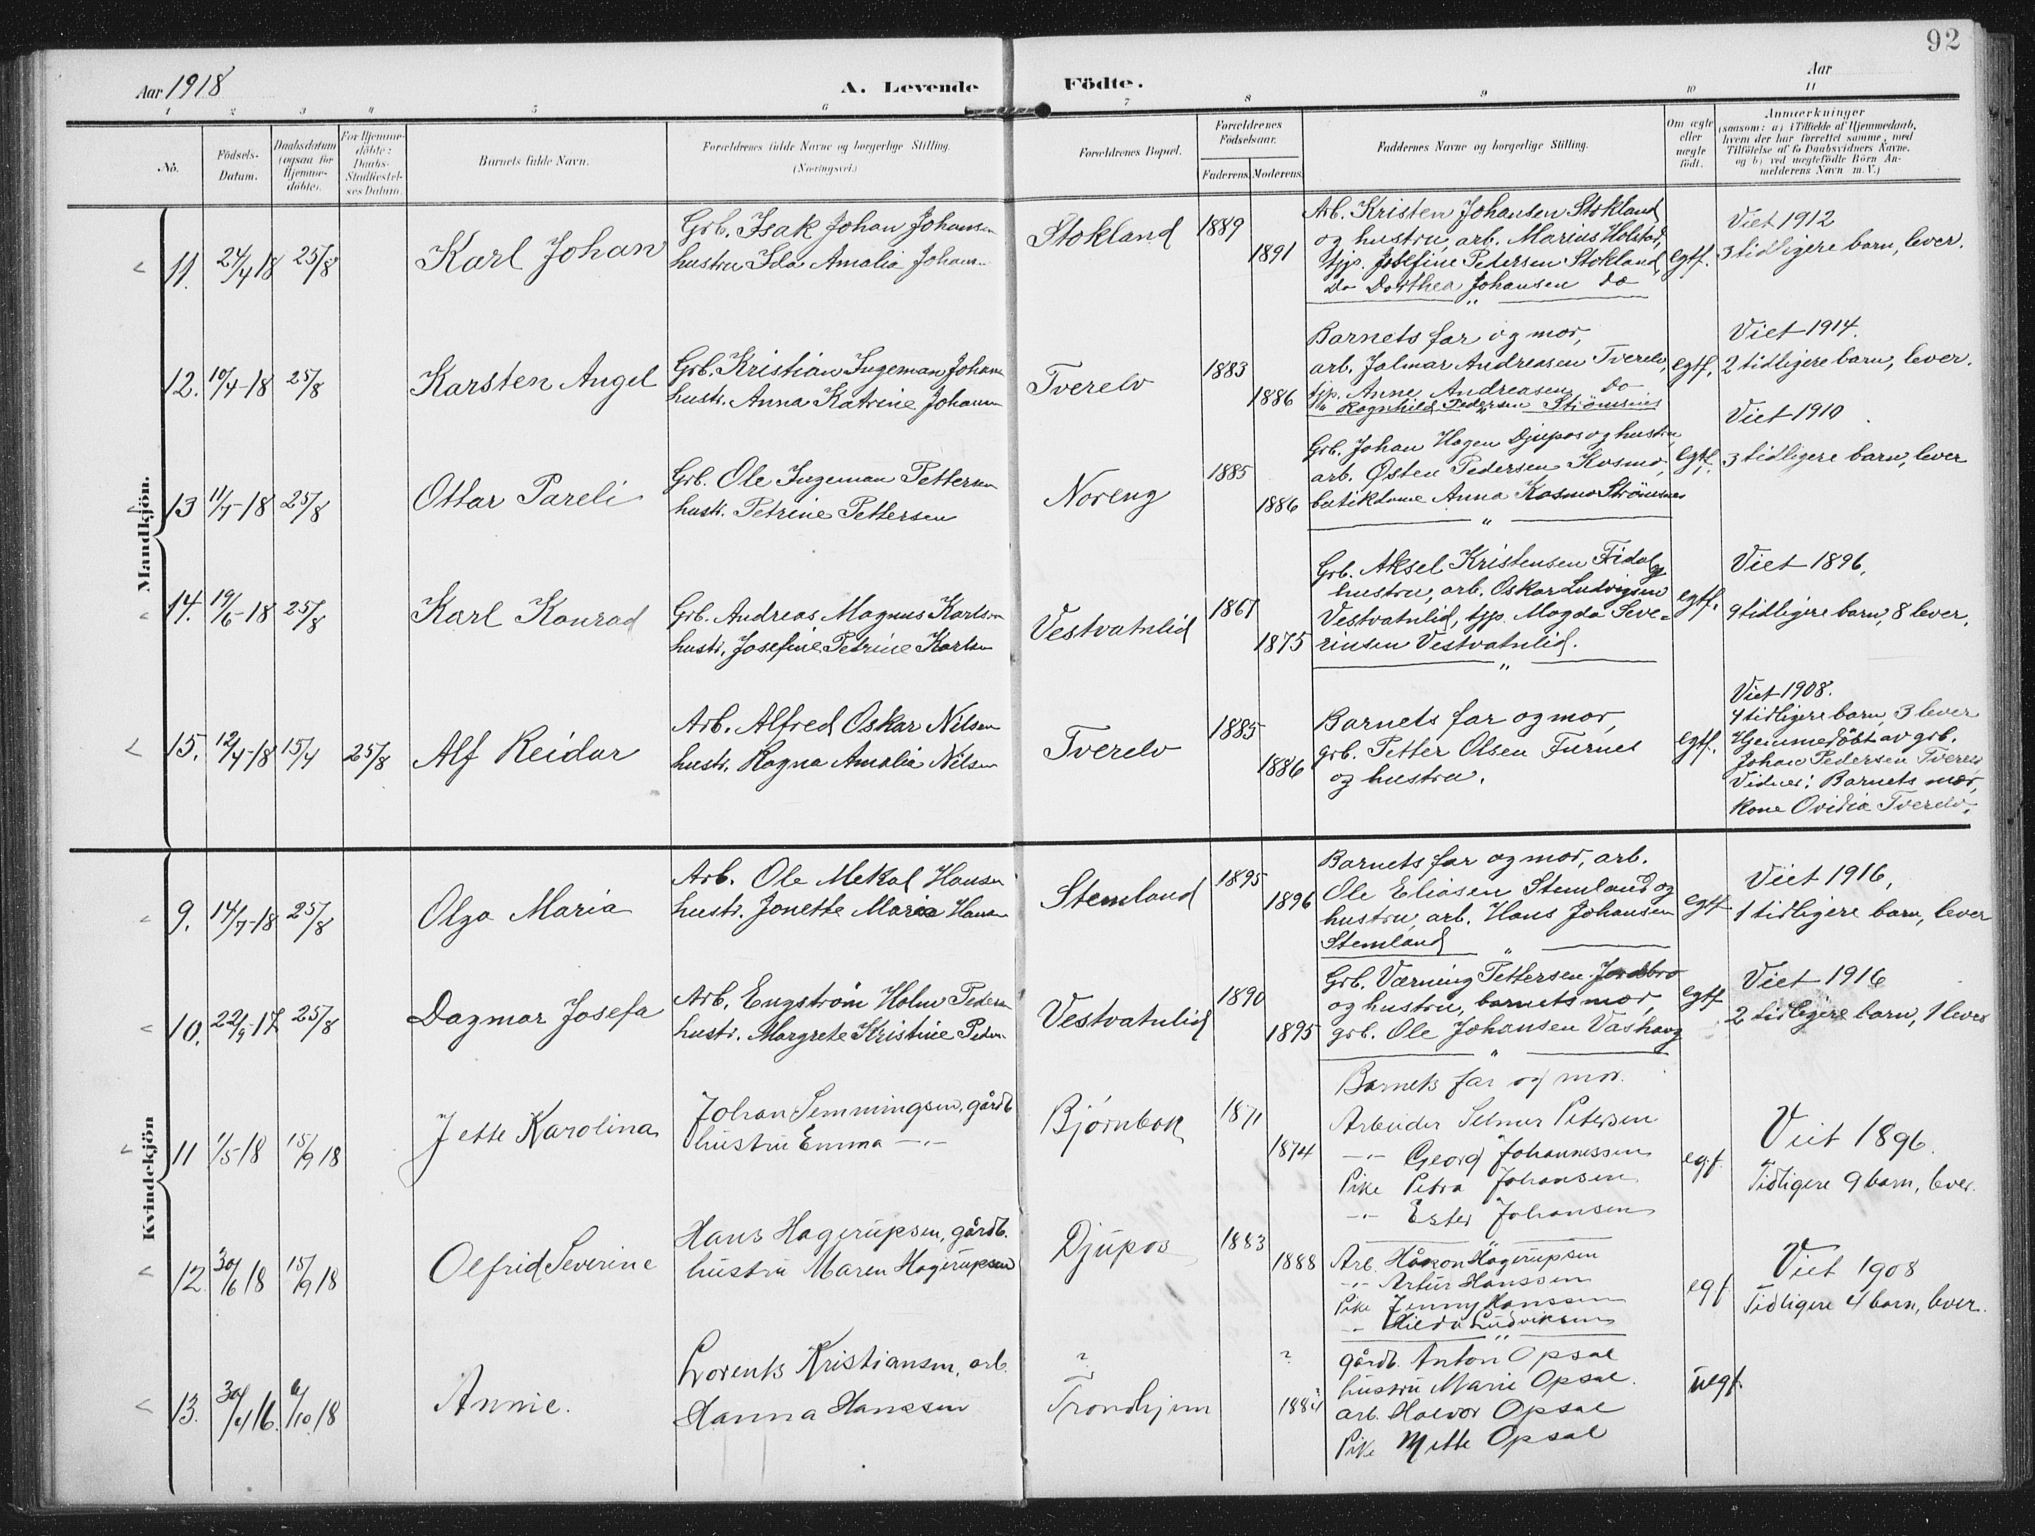 92
Aar 1918
A. Levende Födte.
Aar
1 2 3 4 5 6 7 8 9 10 11
No.
Födsels-Datum.
Daabsdatum (ogsaa for Hjemme-döbte).
For Hjemme-döbte: Daabs-Stadfæstel-ses Datum.
Barnets fulde Navn.
Forældrenes fulde Navne og borgerlige Stilling. (Næringsvei.)
Forældrenes Bopæl.
Forældrenes Födselsaar.
Faderens. Moderens.
Faddernes Navne og borgerlige Stilling.
Om ægte eller uægte födt.
Anmærkninger
(saasom: a) i Tilfælde af Hjemmedaab, hvem der har forrettet samme, med Tilföielse af to Daabsvidners Navne, og b) ved uægtefödte Börn An-melderens Navn m. V.)
Mandkjön.
11. 24/4 18 25/8 Karl Johan
Grb. Isak Johan Johansen
hustru Ida Amalia Johans-
Stokland 1889 1891
Arb. Kristen Johansen Stokland
og hustru, arb. Marius Holstad,
tjp. Josefine Petersen Stokland,
do Dorthea Johansen do
egtf.
Viet 1912
3 tidligere barn, lever.
12. 10/4-18 25/8 Karsten Angel
Grb. Kristian Ingeman Johan
hustr. Anna Katrine Johansen
Tverelv 1883 1886
Barnets far og mor,
arb. Jalmar Andreasen Tverelv,
tjp. Anne Andreasen do
" Ragnhild Pedersen Strömsnes
egtf.
Viet 1914.
2 tidligere barn, lever.
13 11/7-18 25/8 Ottar Pareli
Grb. Ole Ingeman Pettersen
hustr. Petrine Pettersen
Noreng 1885 1886
Grb. Johan Hagen Djupos og hustru
arb. Østen Pedersen Kosmo,
butikdame Anna Kosmo Strömsnes
egtf.
Viet 1910
3 tidligere barn, lever
14. 19/6-18 25/8 Karl Konrad
Grb. Andreas Magnus Karlsen
hustr. Josefine Petrine Karlsen
Vestvatnlid 1867 1875
Grb. Aksel Kristensen og
hustru, arb. Oskar Ludvigsen
Vestvatnlid, tjp. Magda Seve-
rinsen Vestvatnlid.
egtf.
Viet 1896,
9 tidligere barn, 8 lever.
15. 12/4-18 15/4 25/8 Alf Reidar
Arb. Alfred Oskar Nilsen
hustr. Ragna Amalia Nilsen
Tverelv 1885 1886
Barnets far og mor,
grb. Petter Olsen Furnes
og hustru.
egtf.
Viet 1908.
4 tidligere barn, 3 lever
Hjemmedöbt av grb.
Johan Pedersen Tverelv
Vidner: Barnets mor,
kone Ovidia Tverelv.
Kvindekjön
9. 14/7-18 25/8 Olga Maria
Arb. Ole Mekal Hansen
hustr. Jonette Maria Hansen
Stemland 1895 1896
Barnets far og mor, arb.
Ole Eliasen Stemland og
hustru, arb. Hans Johansen
Stemland
egtf
Viet 1916,
1 tidligere barn, lever
10. 22/9-17 25/8 Dagmar Josefa
Arb. Engström Holm Pedersen
hustr. Margrete Kristine Peder-
Vestvatnlid 1890 1895
Grb. Værning Pettersen Jordbro
og hustru, barnets mor,
grb. Ole Johansen Vashaug
egtf
Viet 1916
2 tidligere barn, 1 lever
11 1/5-18 15/9 18 Jette Karolina
Johan Semmingsen, gårdb
hustru Emma -"-
Björnbak 1871 1874
Barnets far og mor.
Arbeider Selmer Petersen
-"- Georg Johannessen
Pike Petra Johansen
-"- Ester Johansen
egf.
Viet 1896.
Tidligere 9 barn, lever.
12 30/6 18 15/9 18 Olfrid Severine
Hans Hagerupsen, gårdb.
hustru Maren Hagerupsen
Djupos 1883 1888
Arb. Håkon Hagerupsen
-"- Artur Hanssen
Pike Jenny Hanssen
-"- Hilda Ludviksen
egf
Viet 1908
Tidligere 4 barn, lever.
13. 30/4 16. 6/10 18 Annie.
Lorents Kristiansen, arb.
Hanna Hanssen
?
Trondhjem ? 1884
gårdb. Anton Opsal
hustru Marie Opsal.
arb. Halvor Opsal
Pike Mette Opsal
uegf.